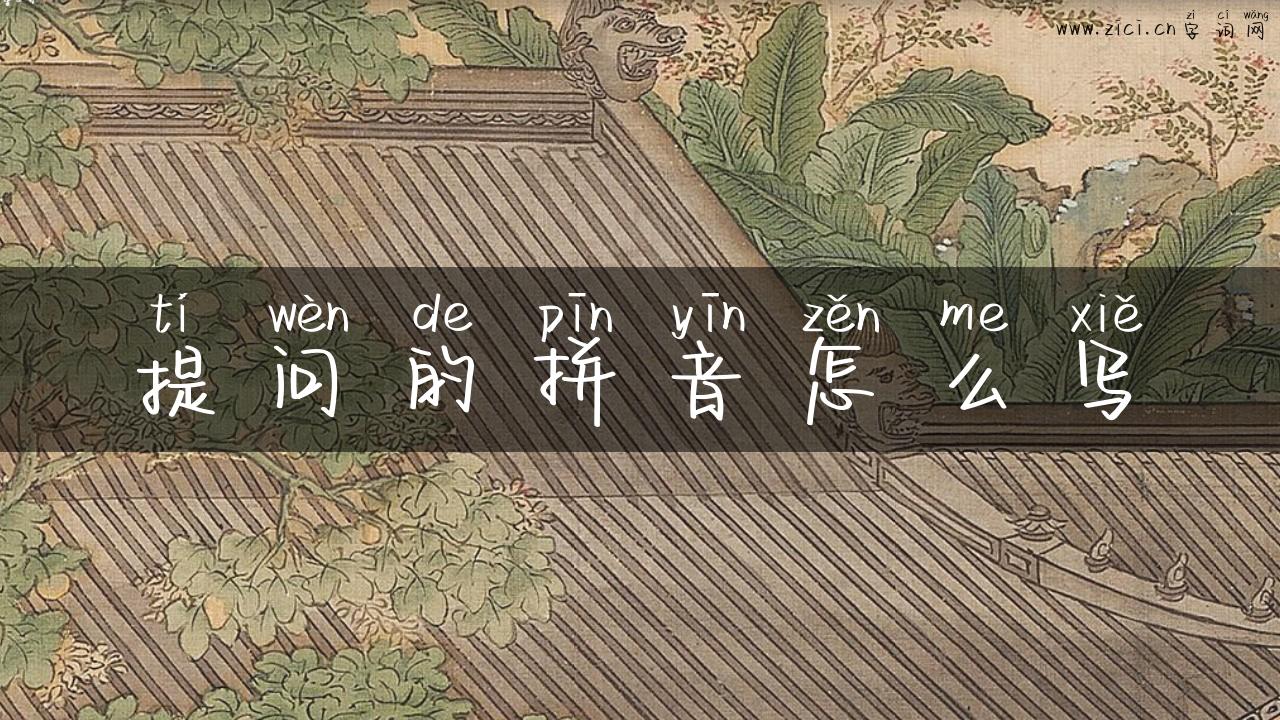 zì cí wǎng
www.zici.cn 字词网
tí wèn de pīn yīn zěn me xiě
提问的拼音怎么写